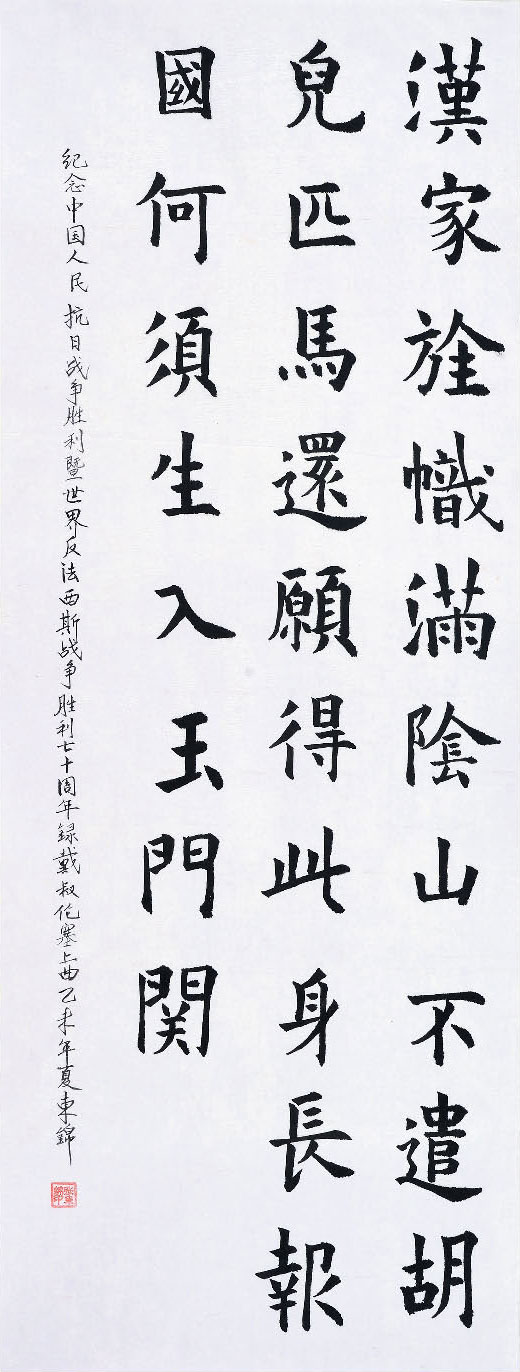 漢家旌幟滿陰山不遣胡
兒匹馬還願得此身長報
國何須生入玉門関
紀念中国人民抗日战争胜利暨世界反法西斯战争胜利七十周年録戴叔伦塞上曲乙未年夏東錦